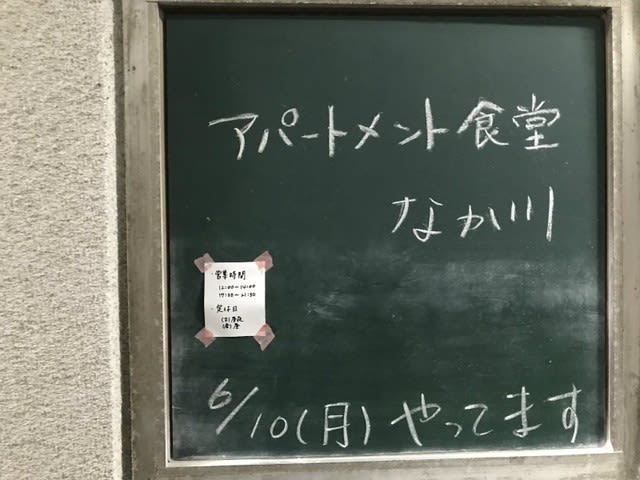 アパートメント食堂
なか川
・営業時間
12:00〜14:00
17:00〜21:30
・定休日
6/10(月)やってます